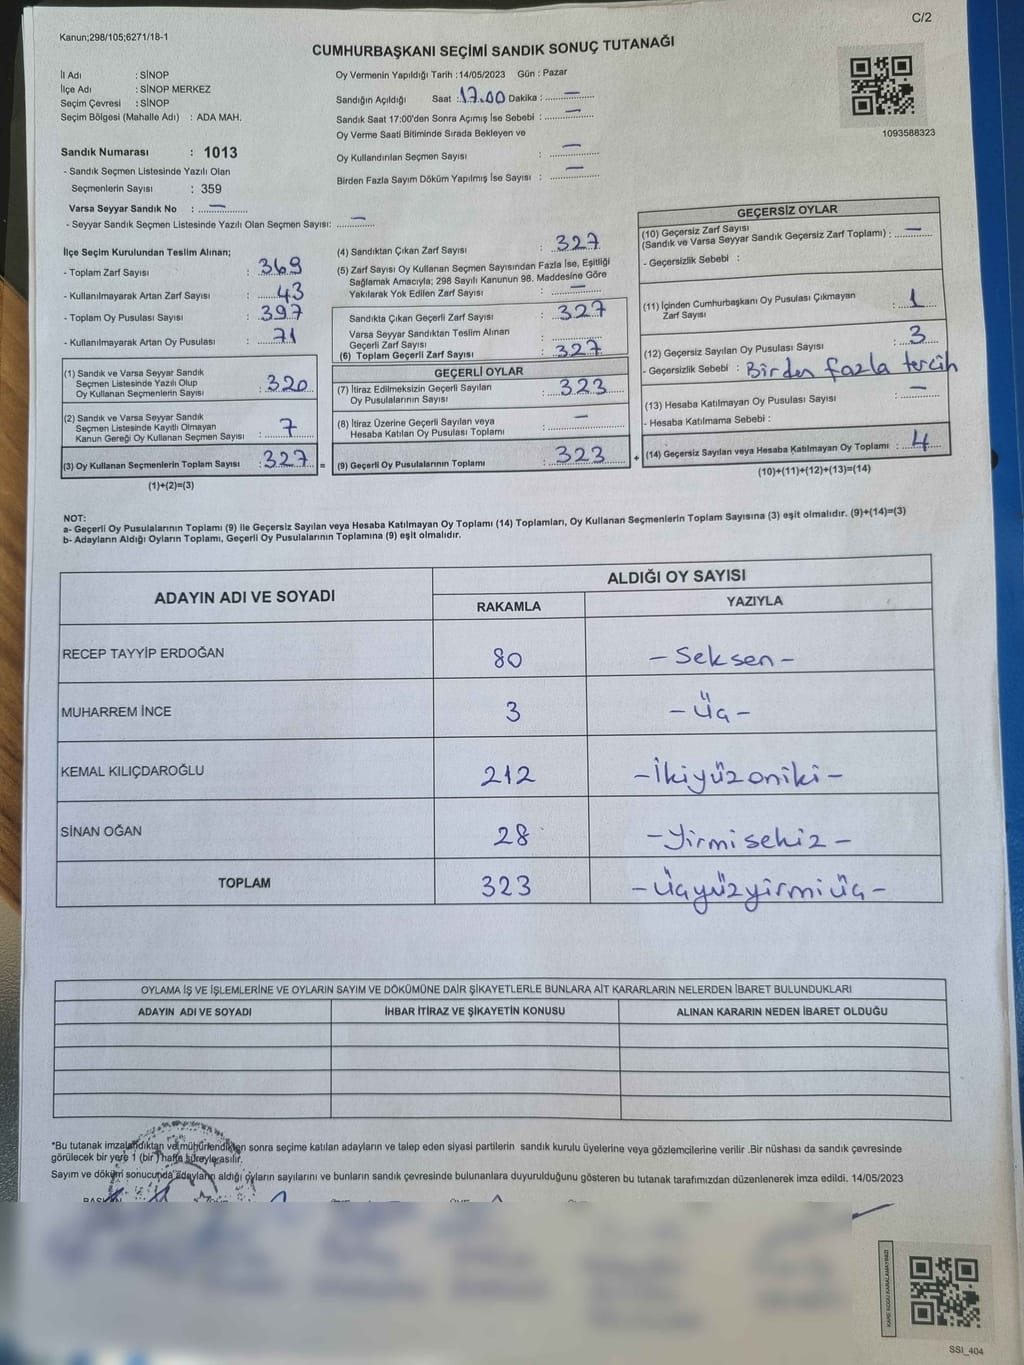 C/2
Kanun;298/105;6271/18-1
CUMHURBAŞKANI SEÇİMİ SANDIK SONUÇ TUTANAĞI
İl Adı : SİNOP
İlçe Adı : SİNOP MERKEZ
Seçim Çevresi : SİNOP
Seçim Bölgesi (Mahalle Adı) : ADA MAH.
Sandık Numarası : 1013
- Sandık Seçmen Listesinde Yazılı Olan
Seçmenlerin Sayısı : 359
Varsa Seyyar Sandık No : —
- Seyyar Sandık Seçmen Listesinde Yazılı Olan Seçmen Sayısı: —
Oy Vermenin Yapıldığı Tarih : 14/05/2023 Gün : Pazar
Sandığın Açıldığı Saat : 17.00 Dakika : —
Sandık Saat 17:00'den Sonra Açımış İse Sebebi : —
Oy Verme Saati Bitiminde Sırada Bekleyen ve
Oy Kullandırılan Seçmen Sayısı : —
Birden Fazla Sayım Döküm Yapılmış İse Sayısı : —
1093588323
İlçe Seçim Kurulundan Teslim Alınan;
- Toplam Zarf Sayısı : 369
- Kullanılmayarak Artan Zarf Sayısı : 43
- Toplam Oy Pusulası Sayısı : 397
- Kullanılmayarak Artan Oy Pusulası : 71
(1) Sandık ve Varsa Seyyar Sandık
Seçmen Listesinde Yazılı Olup
Oy Kullanan Seçmenlerin Sayısı : 320
(2) Sandık ve Varsa Seyyar Sandık
Seçmen Listesinde Kayıtlı Olmayan
Kanun Gereği Oy Kullanan Seçmen Sayısı : 7
(3) Oy Kullanan Seçmenlerin Toplam Sayısı : 327 =
(1)+(2)=(3)
(4) Sandıktan Çıkan Zarf Sayısı : 327
(5) Zarf Sayısı Oy Kullanan Seçmen Sayısından Fazla İse, Eşitliği
Sağlamak Amacıyla; 298 Sayılı Kanunun 98. Maddesine Göre
Yakılarak Yok Edilen Zarf Sayısı : —
Sandıkta Çıkan Geçerli Zarf Sayısı : 327
Varsa Seyyar Sandıktan Teslim Alınan
Geçerli Zarf Sayısı :
(6) Toplam Geçerli Zarf Sayısı : 327
GEÇERLİ OYLAR
(7) İtiraz Edilmeksizin Geçerli Sayılan
Oy Pusulalarının Sayısı : 323
(8) İtiraz Üzerine Geçerli Sayılan veya
Hesaba Katılan Oy Pusulası Toplamı : —
(9) Geçerli Oy Pusulalarının Toplamı : 323 +
GEÇERSİZ OYLAR
(10) Geçersiz Zarf Sayısı
(Sandık ve Varsa Seyyar Sandık Geçersiz Zarf Toplamı) : —
- Geçersizlik Sebebi :
(11) İçinden Cumhurbaşkanı Oy Pusulası Çıkmayan
Zarf Sayısı : 1
(12) Geçersiz Sayılan Oy Pusulası Sayısı : 3
- Geçersizlik Sebebi : Birden fazla tercih
(13) Hesaba Katılmayan Oy Pusulası Sayısı : —
- Hesaba Katılmama Sebebi :
(14) Geçersiz Sayılan veya Hesaba Katılmayan Oy Toplamı : 4
(10)+(11)+(12)+(13)=(14)
NOT:
a- Geçerli Oy Pusulalarının Toplamı (9) ile Geçersiz Sayılan veya Hesaba Katılmayan Oy Toplamı (14) Toplamları, Oy Kullanan Seçmenlerin Toplam Sayısına (3) eşit olmalıdır. (9)+(14)=(3)
b- Adayların Aldığı Oyların Toplamı, Geçerli Oy Pusulalarının Toplamına (9) eşit olmalıdır.
ADAYIN ADI VE SOYADI ALDIĞI OY SAYISI
RAKAMLA YAZIYLA
RECEP TAYYİP ERDOĞAN 80 - Seksen -
MUHARREM İNCE 3 - Üç -
KEMAL KILIÇDAROĞLU 212 - İkiyüzoniki -
SİNAN OĞAN 28 - Yirmisekiz -
TOPLAM 323 - Üçyüzyirmiüç -
OYLAMA İŞ VE İŞLEMLERİNE VE OYLARIN SAYIM VE DÖKÜMÜNE DAİR ŞİKAYETLERLE BUNLARA AİT KARARLARIN NELERDEN İBARET BULUNDUKLARI
ADAYIN ADI VE SOYADI İHBAR İTİRAZ VE ŞİKAYETİN KONUSU ALINAN KARARIN NEDEN İBARET OLDUĞU
*Bu tutanak imzalandıktan ve mühürlendikten sonra seçime katılan adayların ve talep eden siyasi partilerin sandık kurulu üyelerine veya gözlemcilerine verilir .Bir nüshası da sandık çevresinde
görülecek bir yere 1 (bir ) hafta süreyle asılır.
Sayım ve döküm sonucunda adayların aldığı oyların sayılarını ve bunların sandık çevresinde bulunanlara duyurulduğunu gösteren bu tutanak tarafımızdan düzenlenerek imza edildi. 14/05/2023
KARE KODU KARALAMAYINIZ!
SSI_404